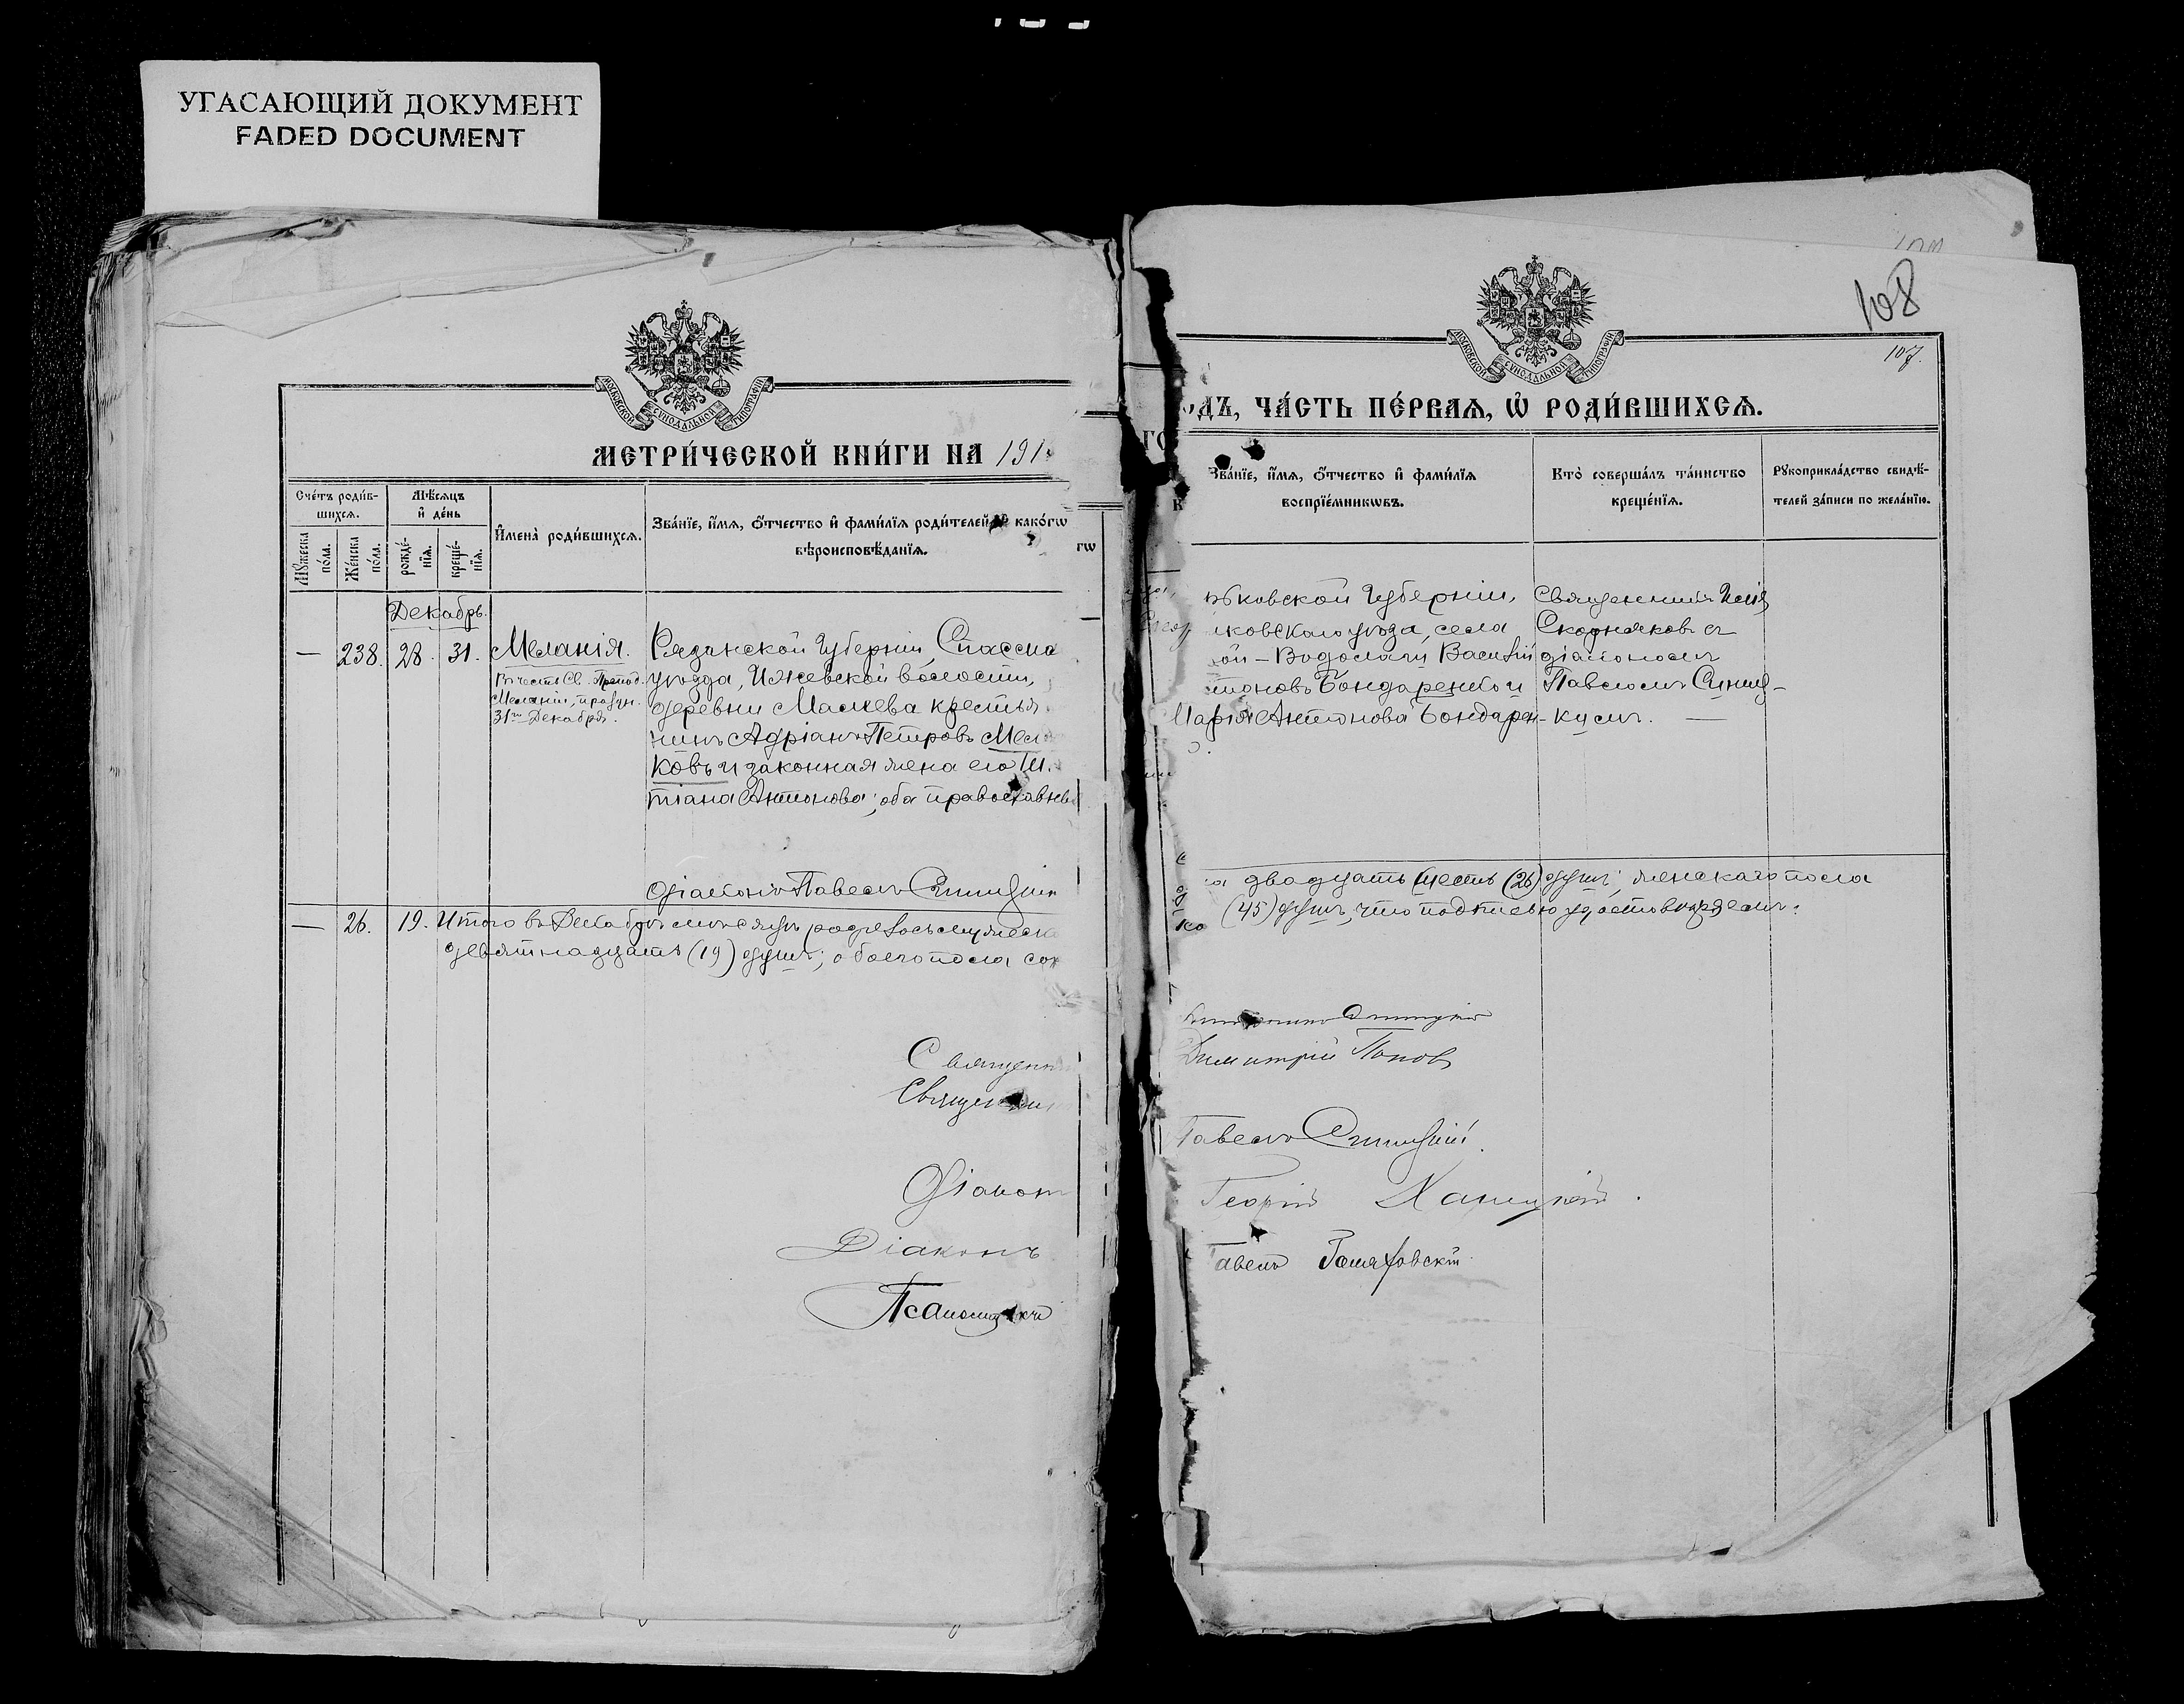 УГАСАЮЩИЙ ДОКУМЕНТ
FADED DOCUMENT
МОСКОВСКОЙ СУНОДАЛЬНОЙ ТИПОГРАФІИ
МЕТРИ́ЧЕСКОЙ КНИ́ГИ НА 191
Сче́тъ роди́в-
шихсѧ.
Мѣ́сѧцъ
и҆ де́нь
Мꙋ́жеска по́ла.
Же́нска по́ла.
рожде́-
нїѧ.
креще́-
нїѧ.
И҆мена̀ роди́вшихсѧ.
Зва́нїе, и҆́мѧ, ѻ҆́тчество и҆ фами́лїѧ роди́телей, и҆ како́гѡ
вѣроисповѣ́данїѧ.
Декабрь.
— 238. 28. 31. Меланія.
Въ честь Св. Препод.
Меланіи, празун.
31го Декабря.
Рязанской Губерніи, Спасска
уѣзда, Ижевской волости,
деревни Макѣева крестья
нинъ Адріанъ Петровъ Мел
ковъ и законная жена его
тіана Антонова; оба православн
Діаконъ Павелъ Синиц
— 26. 19. Итого въ Декабрѣ мѣсяцѣ родилось мужеска
девятнадцать (19) душъ; обоего пола
Священн
Священни
Діакон
Діаконъ
Псаломщ
108
107.
МОСКОВСКОЙ СУНОДАЛЬНОЙ ТИПОГРАФІИ
ДЪ, ЧА́СТЬ ПЕ́РВАѦ, Ѽ РОДИ́ВШИХСѦ.
Зва́нїе, и҆́мѧ, ѻ҆́тчество и҆ фами́лїѧ
воспрїе́мникѡвъ.
Кто̀ соверша́лъ та́инство
креще́нїѧ.
Рꙋкоприкла́дство свидѣ́-
телей за́писи по жела́нїю.
ьковской Губерніи,
ковскаго уѣзда, села
ой-Водолаги Василій
тоновъ Бондаренко и
Марія Антонова Бондарен-
Священникъ
Скорняковъ съ
діакономъ
Павломъ Синиц-
кимъ. —
двадцать шесть (26) душъ; женскаго пола
(45) душъ, что подписью удостовѣряемъ:
Димитрій Попов
Павелъ Синицкій.
Георгій
Павелъ